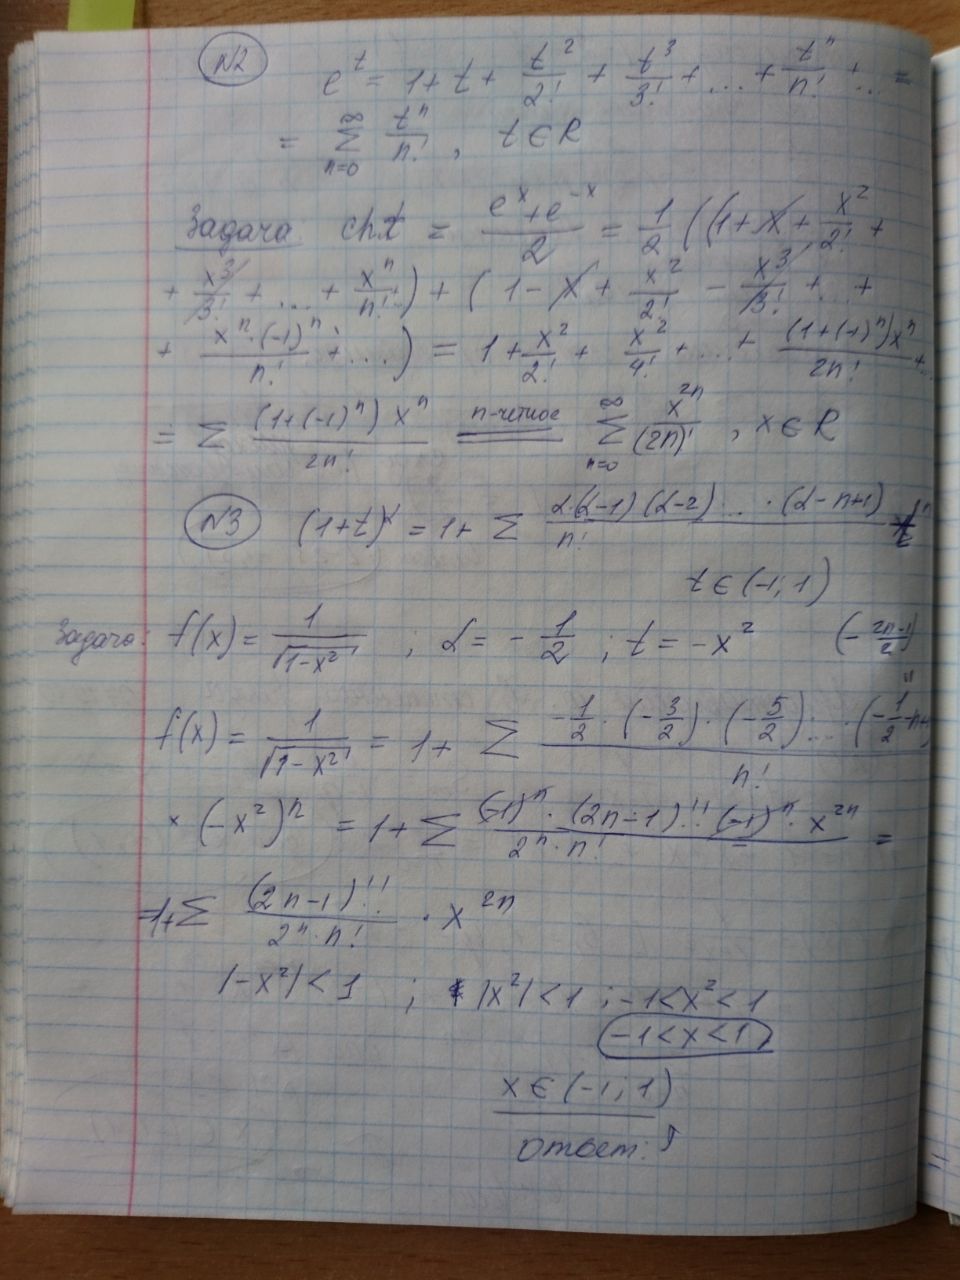 N2
e^t = 1 + t + t^2/2! + t^3/3! + ... + t^n/n! + ... =
= ∑_{n=0}^∞ t^n/n! , t ∈ R
Задача chx = (e^x + e^{-x})/2 = 1/2 ((1 + x + x^2/2! +
+ x^3/3! + ... + x^n/n! + ) + ( 1 - x + x^2/2! - x^3/3! + ... +
+ x^n·(-1)^n/n! + ...) = 1 + x^2/2! + x^2/4! + ... + (1+(-1)^n)x^n/2n! + ...
= ∑ (1+(-1)^n) x^n/2n! n-четное = ∑_{n=0}^∞ x^{2n}/(2n)! , x ∈ R
N3 (1+t)^α = 1 + ∑ α·(α-1)(α-2)...·(α-n+1)/n! t^n
t ∈ (-1; 1)
Задача: f(x) = 1/√(1-x^2) ; α = -1/2 ; t = -x^2 (-(2n-1)/2)
f(x) = 1/√(1-x^2) = 1 + ∑ -1/2·(-3/2)·(-5/2)...·(-1/2-n+1)/n!
× (-x^2)^n = 1 + ∑ (-1)^n·(2n-1)!!(-1)^n·x^{2n}/2^n·n! =
= 1 + ∑ (2n-1)!!/2^n·n! · x^{2n}
|-x^2| < 1 ; |x^2| < 1 ; -1 < x^2 < 1
-1 < x < 1
x ∈ (-1; 1)
ответ: